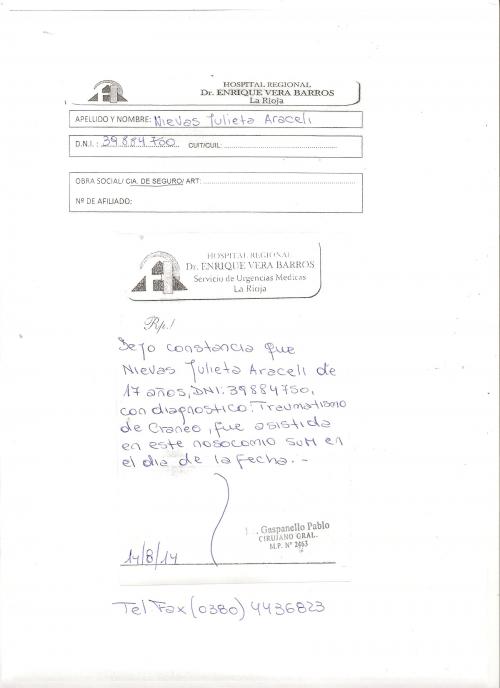 HOSPITAL REGIONAL
Dr. ENRIQUE VERA BARROS
La Rioja
APELLIDO Y NOMBRE: Nievas Julieta Araceli
D.N.I. : 39884750 CUIT/CUIL:
OBRA SOCIAL/ CIA. DE SEGURO/ ART:
Nº DE AFILIADO:
HOSPITAL REGIONAL
Dr. ENRIQUE VERA BARROS
Servicio de Urgencias Medicas
La Rioja
Rp./
Dejo constancia que
Nievas Julieta Araceli de
17 años, DNI: 39884750,
con diagnostico: Traumatismo
de Craneo, fue asistida
en este nosocomio SUM en
el dia de la fecha.-
Gaspanello Pablo
CIRUJANO GRAL.
M.P. Nº 2463
14/8/14
Tel Fax (0380) 4436823